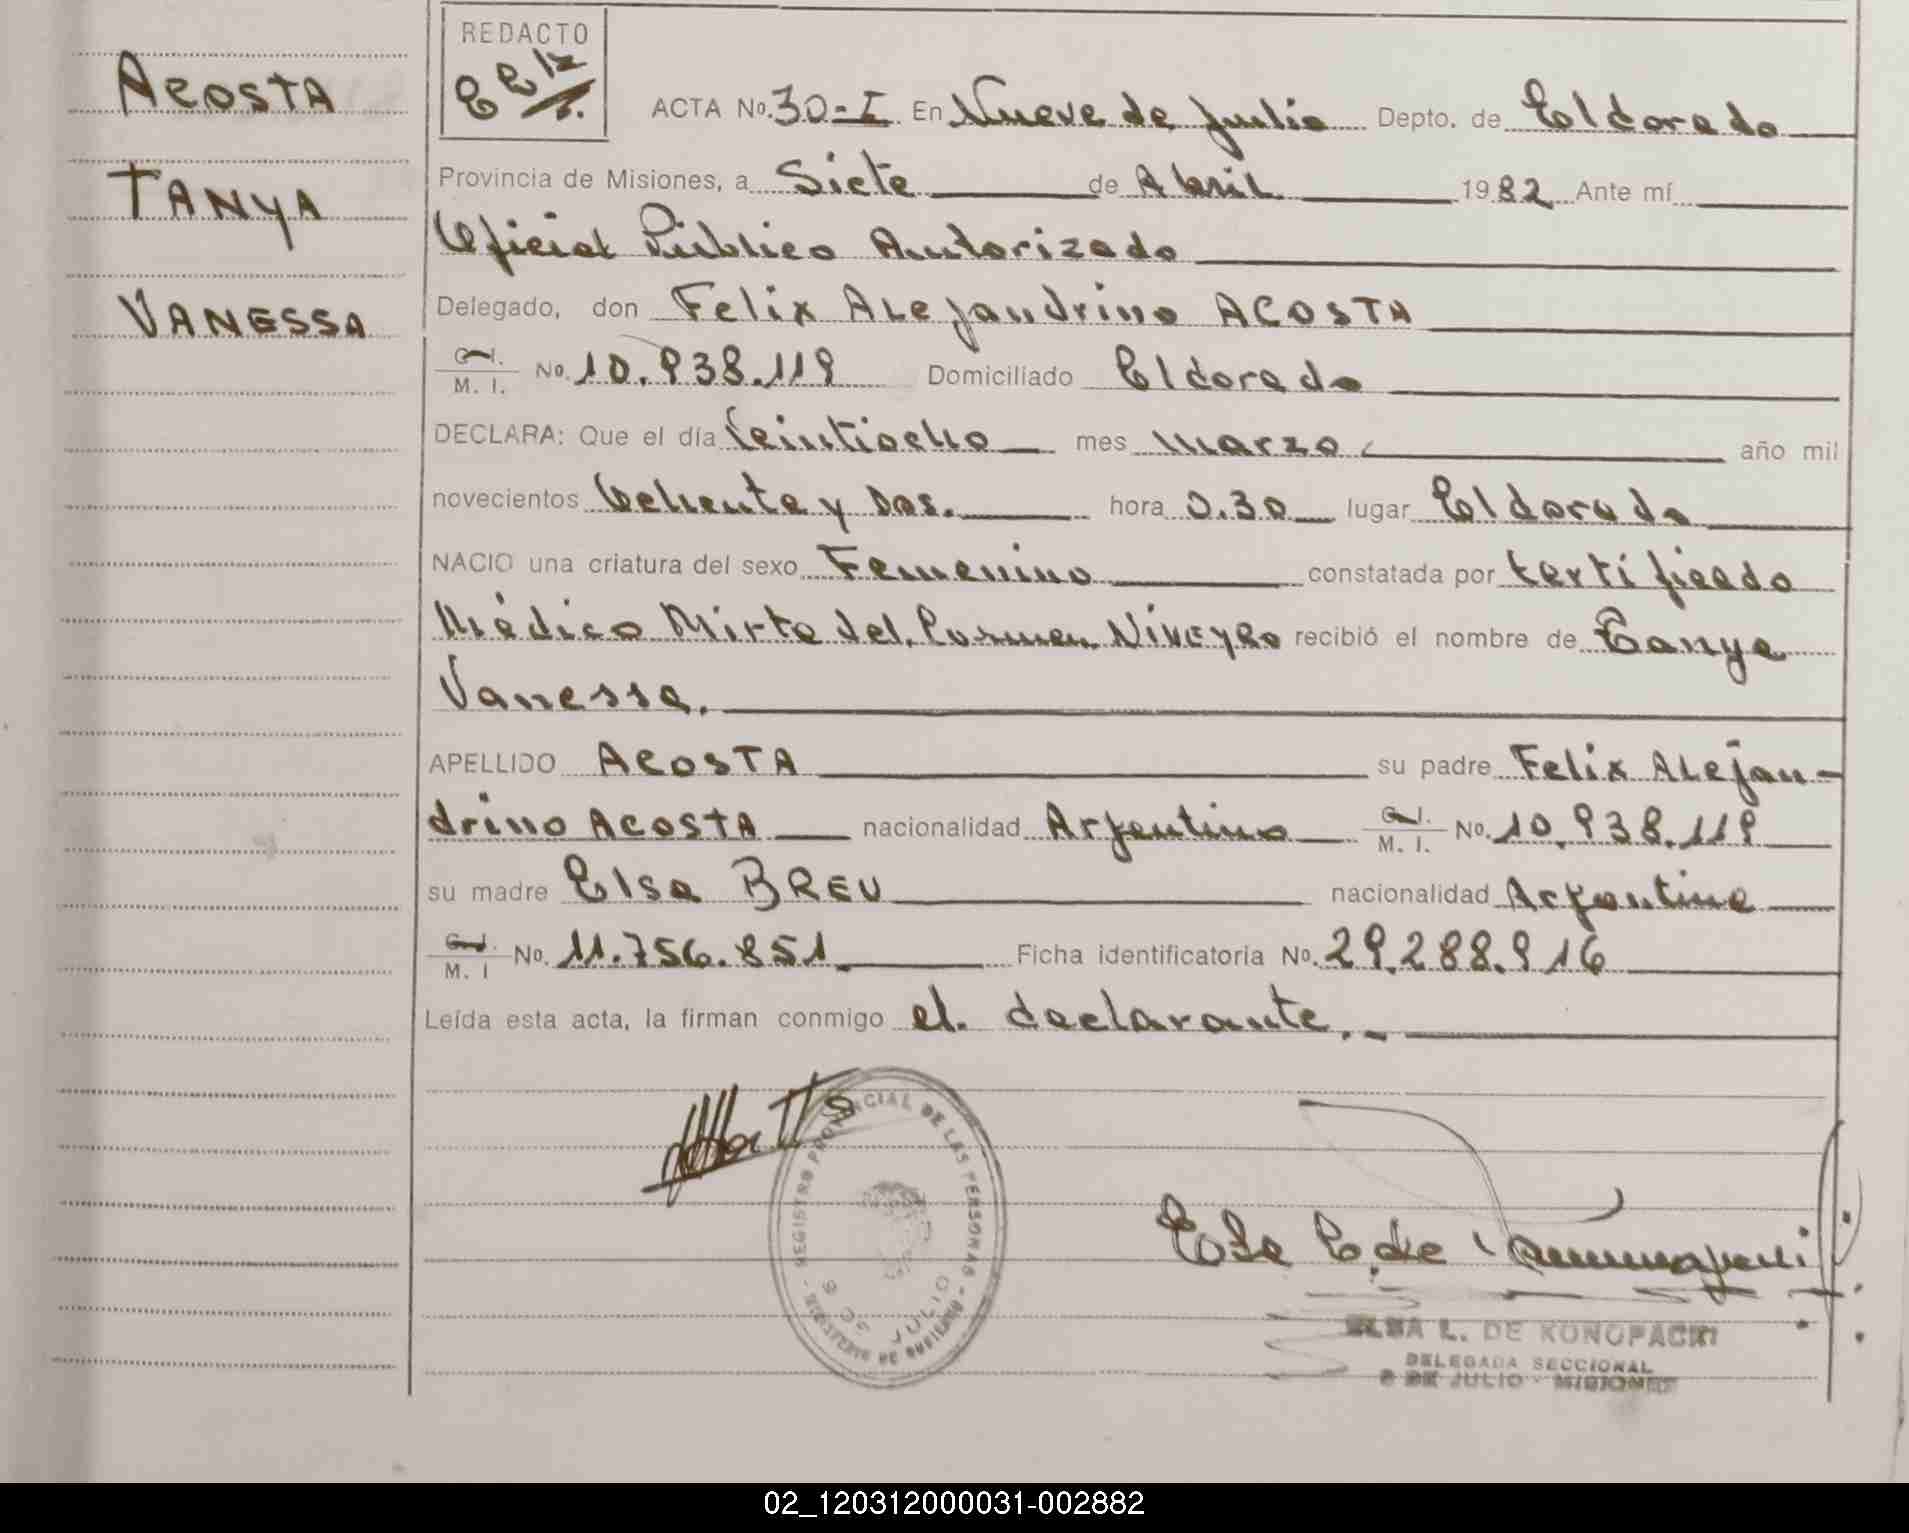 ACOSTA
TANYA
VANESSA
REDACTO
ACTA No. 30-I En Nueve de Julio Depto. de Eldorado
Provincia de Misiones, a Siete de Abril 1982 Ante mí
Oficial Público Autorizado
Delegado, don Felix ALejandrino ACOSTA
M. I. No. 10.938.119 Domiciliado Eldorado
DECLARA: Que el día Veintiocho mes marzo año mil
novecientos Ochenta y Dos. hora 0.30 lugar Eldorado
NACIO una criatura del sexo Femenino constatada por Certificado
Médico Mirta del Carmen NiVEyRo recibió el nombre de Tanya
Vanessa.
APELLIDO ACOSTA su padre Felix ALejan-
drino ACOSTA nacionalidad Argentino M. I. No. 10.938.119
su madre Elsa BREU nacionalidad Argentina
M. I No. 11.756.851 Ficha identificatoria No. 29.288.916
Leída esta acta, la firman conmigo el. declarante.-
REGISTRO PROVINCIAL DE LAS PERSONAS - MINISTERIO DE GOBIERNO -
9 DE JULIO
ELSA L. DE KONOPACKI
DELEGADA SECCIONAL
9 DE JULIO - MISIONES
02_120312000031-002882